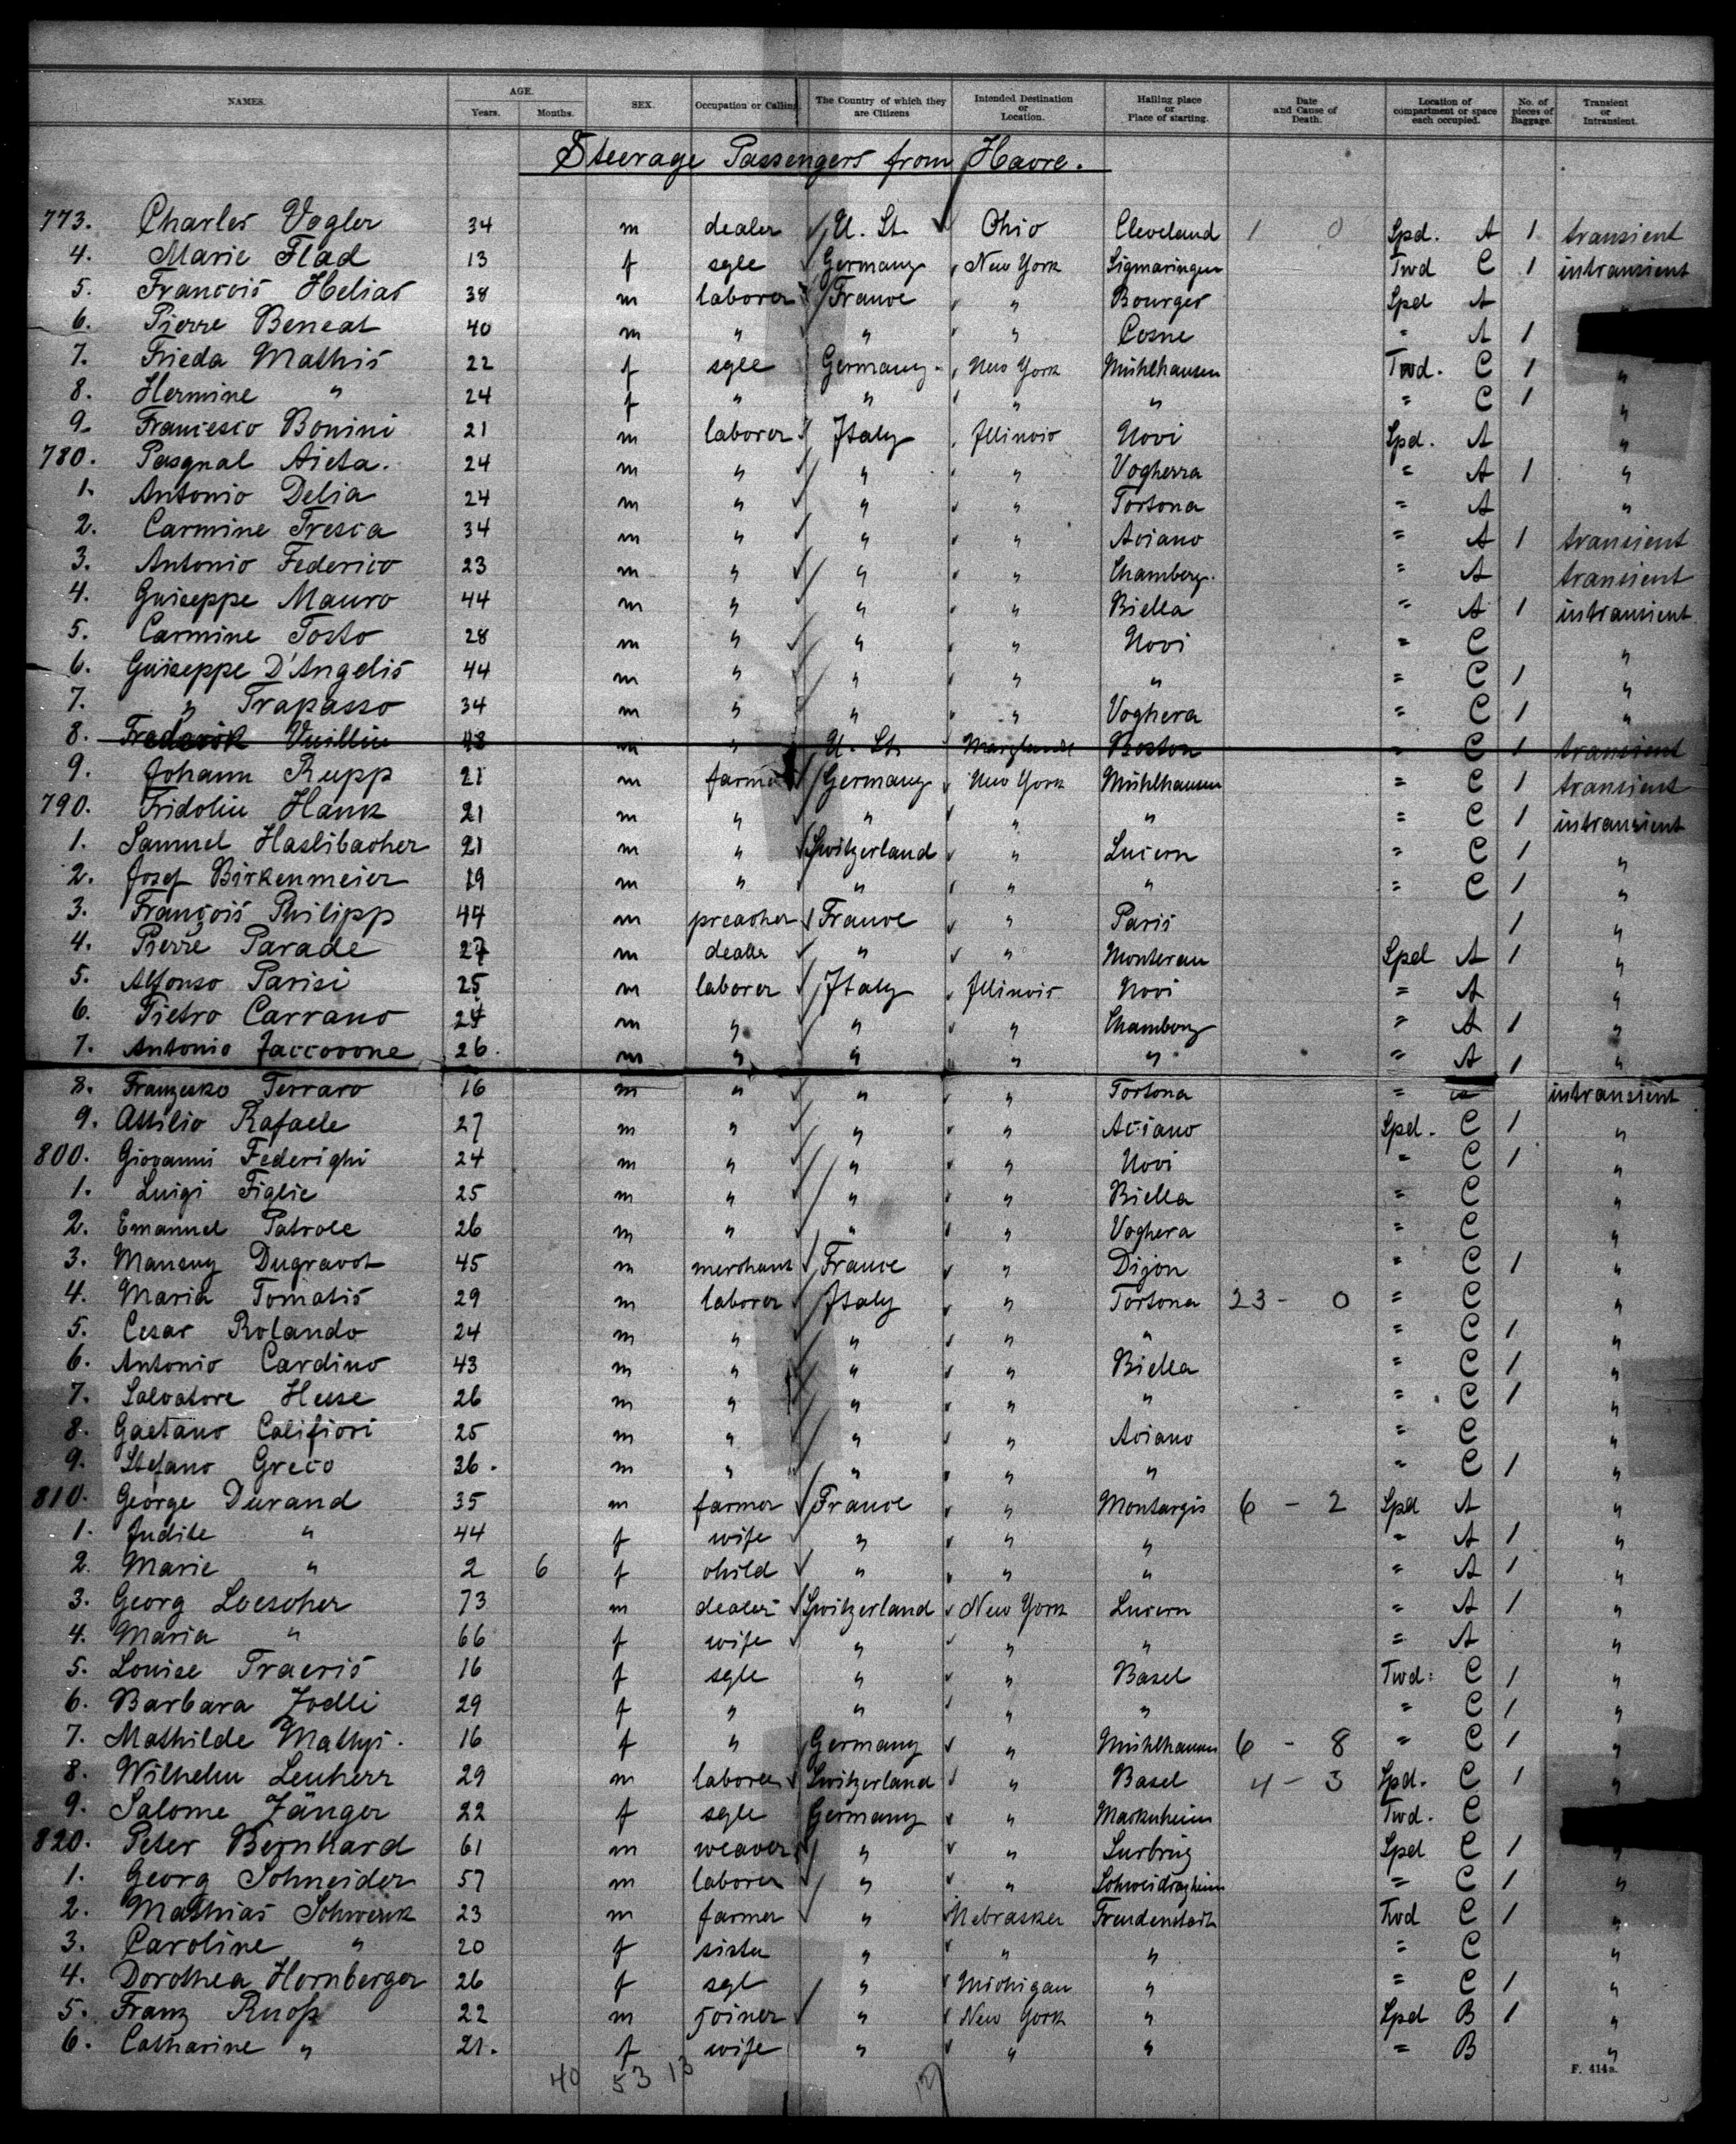 NAMES. AGE. SEX. Occupation or Calling. The Country of which they are Citizens Intended Destination or Location. Hailing place or Place of starting. Date and Cause of Death. Location of compartment or space each occupied. No. of pieces of Baggage. Transient or Intransient.
Years. Months.
Steerage Passengers from Havre.
773. Charles Vogler 34 m dealer U. St. Ohio Cleveland 1 0 Spd. A 1 transient
4. Marie Flad 13 f sgle Germany New York Sigmaringen Twd C 1 intransient
5. Francois Helias 38 m laborer France " Bourges Spd A "
6. Pierre Beneat 40 m " " " Cosne " A 1
7. Frieda Mathis 22 f sgle Germany New York Mühlhausen Twd. C 1 "
8. Hermine " 24 f " " " " " C 1 "
9. Francesco Bonini 21 m laborer Italy Illinois Novi Spd. A "
780. Pasqual Aieta. 24 m " " " Vogherra " A 1 "
1. Antonio Delia 24 m " " " Tortona " A "
2. Carmine Tresca 34 m " " " Aviano " A 1 transient
3. Antonio Federico 23 m " " " Chambery. " A transient
4. Guiseppe Mauro 44 m " " " Biella " A 1 intransient
5. Carmine Tosto 28 m " " " Novi " C "
6. Guiseppe D'Angelis 44 m " " " " " C 1 "
7. " Trapasso 34 m " " " Voghera " C 1 "
8. Frederik Vuillin 48 m " U. St. Maryland Boston " C 1 transient
9. Johann Rupp 21 m farmer Germany New York Mühlhausen " C 1 transient
790. Fridolin Hank 21 m " " " " " C 1 intransient
1. Samuel Haslibacher 21 m " Switzerland " Lucern " C 1 "
2. Josef Birkenmeier 19 m " " " " " C 1 "
3. François Philipp 44 m preacher France " Paris 1 "
4. Pierre Parade 27 m dealer " " Monterau Spd A 1 "
5. Alfonso Parisi 25 m laborer Italy Illinois Novi " A "
6. Pietro Carrano 24 m " " " Chambery " A 1 "
7. Antonio Jaccovone 26. m " " " " " A 1 "
8. Franzesko Ferraro 16 m " " " Tortona " intransient
9. Attilio Rafaele 27 m " " " Aviano Spd. C 1 "
800. Giovanni Federighi 24 m " " " Novi " C 1 "
1. Luigi Figlie 25 m " " " Biella " C "
2. Emanuel Patrole 26 m " " " Voghera " C "
3. Mansuy Dugravot 45 m merchant France " Dijon " C 1 "
4. Maria Tomatis 29 m laborer Italy " Tortona 23 - 0 " C "
5. Cesar Rolando 24 m " " " " " C 1 "
6. Antonio Cardino 43 m " " " Biella " C 1 "
7. Salvatore Heuse 26 m " " " " " C 1 "
8. Gaetano Califiori 25 m " " " Aviano " C "
9. Stefano Greco 36. m " " " " " C 1 "
810. George Durand 35 m farmer France " Montargis 6 - 2 Spd A "
1. Judite " 44 f wife " " " " A 1 "
2. Marie " 2 6 f child " " " " A 1 "
3. Georg Loescher 73 m dealer Switzerland New York Lucern " A 1 "
4. Maria " 66 f wife " " " " A "
5. Louise Traeris 16 f sgle " " Basel Twd: C 1 "
6. Barbara Jodli 29 f " " " " " C 1 "
7. Mathilde Mathyi. 16 f " Germany " Mühlhausen 6 - 8 " C 1 "
8. Wilhelm Leuherr 29 m laborer Switzerland " Basel 4 - 3 Spd. C 1 "
9. Salome Zänger 22 f sgle Germany " Markenheim Twd. C
820. Peter Bernhard 61 m weaver " " Spd C 1 "
1. Georg Schneider 57 m laborer " " " C 1 "
2. Mathias Schwenk 23 m farmer " Nebrasker Freudenstadt Twd C 1 "
3. Caroline " 20 f sister " " " " C "
4. Dorothea Hornberger 26 f sgl " Michigan " " C 1 "
5. Franz Ruop 22 m joiner " New York " Spd B 1 "
6. Catharine " 21. f wife " " " " B "
40 53 13
F. 414a.